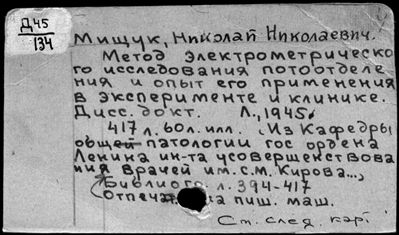 Д45
134
Мищук, Николай Николаевич.
Метод электрометрическо
го исследования потоотделе
ния и опыт его применения
в эксперименте и клинике.
Дисс. докт. Л., 1945.
417 л. 60 л. илл. (Из Кафедры
общей патологии гос ордена
Ленина ин-та усовершенствова
ния врачей им. С.М. Кирова...,
Библиогр: л. 394-417
Отпечат на пиш. маш.
См. след. карт